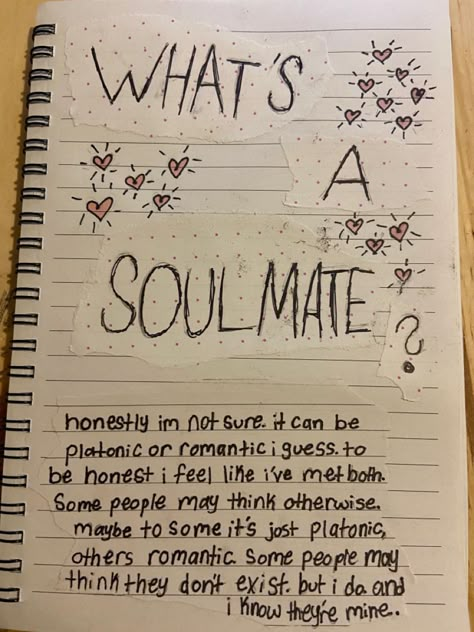 WHAT'S
A
SOULMATE
?
honestly im not sure. it can be
platonic or romantic i guess. to
be honest i feel like i've met both.
Some people may think otherwise.
maybe to some it's jost platonic,
others romantic. Some people may
think they don't exist. but i do. and
i know they're mine..